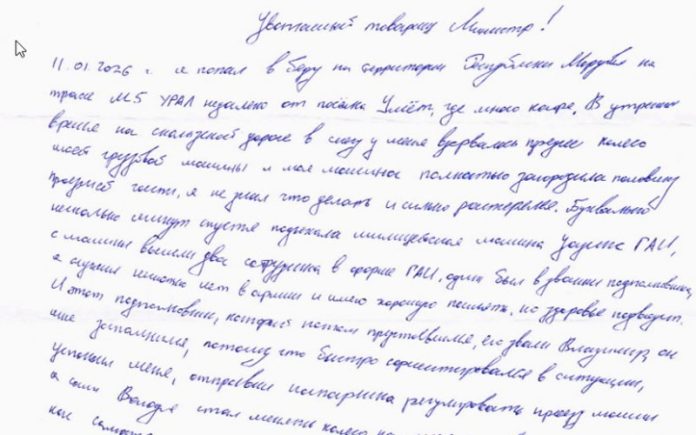 Уважаемый товарищ Министр!
11.01.2026 г. я попал в беду на территории Республики Мордовия на
трассе М5 УРАЛ недалеко от посёлка Умёт, где много кафе. В утреннее
время на скользкой дороге в снегу у меня взорвалось переднее колесо
моей грузовой машины и моя машина полностью загородила половину
проезжей части, я не знал что делать и сильно растерялся. Буквально
несколько минут спустя подъехала милицейская машина Уазик ГАИ,
с машины вышли два сотрудника в форме ГАИ, один был в звании подполковника,
я служил лет в армии и имею хорошую память, но здоровье подводит.
И этот подполковник, который потом представился, его звали Владимир, он
мне запомнился, потому что быстро сориентировался в ситуации,
успокоил меня, отправил напарника регулировать проезд машин
а сам Володя стал менять колесо на
как